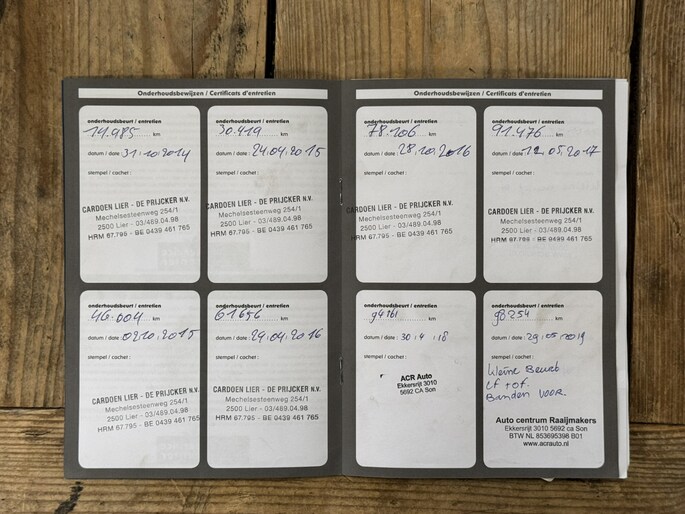 Onderhoudsbewijzen / Certificats d'entretien
onderhoudsbeurt / entretien
14.985 km
datum / date : 31.10.2014
stempel / cachet :
CARDOEN LIER - DE PRIJCKER N.V.
Mechelsesteenweg 254/1
2500 Lier - 03/489.04.98
HRM 67.795 - BE 0439 461 765
onderhoudsbeurt / entretien
30.419 km
datum / date : 24.04.2015
stempel / cachet :
CARDOEN LIER - DE PRIJCKER N.V.
Mechelsesteenweg 254/1
2500 Lier - 03/489.04.98
HRM 67.795 - BE 0439 461 765
onderhoudsbeurt / entretien
46.004 km
datum / date : 02.10.2015
stempel / cachet :
CARDOEN LIER - DE PRIJCKER N.V.
Mechelsesteenweg 254/1
2500 Lier - 03/489.04.98
HRM 67.795 - BE 0439 461 765
onderhoudsbeurt / entretien
61656 km
datum / date : 29.04.2016
stempel / cachet :
CARDOEN LIER - DE PRIJCKER N.V.
Mechelsesteenweg 254/1
2500 Lier - 03/489.04.98
HRM 67.795 - BE 0439 461 765
Onderhoudsbewijzen / Certificats d'entretien
onderhoudsbeurt / entretien
78.106 km
datum / date : 28.10.2016
stempel / cachet :
CARDOEN LIER - DE PRIJCKER N.V.
Mechelsesteenweg 254/1
2500 Lier - 03/489.04.98
HRM 67.795 - BE 0439 461 765
onderhoudsbeurt / entretien
91.476 km
datum / date : 12.05.2017
stempel / cachet :
CARDOEN LIER - DE PRIJCKER N.V.
Mechelsesteenweg 254/1
2500 Lier - 03/489.04.98
HRM 67.795 - BE 0439 461 765
onderhoudsbeurt / entretien
94161 km
datum / date : 30 4 18
stempel / cachet :
ACR Auto
Ekkersrijt 3010
5692 CA Son
onderhoudsbeurt / entretien
98254 km
datum / date : 29.05.2019
stempel / cachet :
kleine Beurt
LF + OF.
Banden VOOR
Auto centrum Raaijmakers
Ekkersrijt 3010 5692 ca Son
BTW NL 853695398 B01
www.acrauto.nl